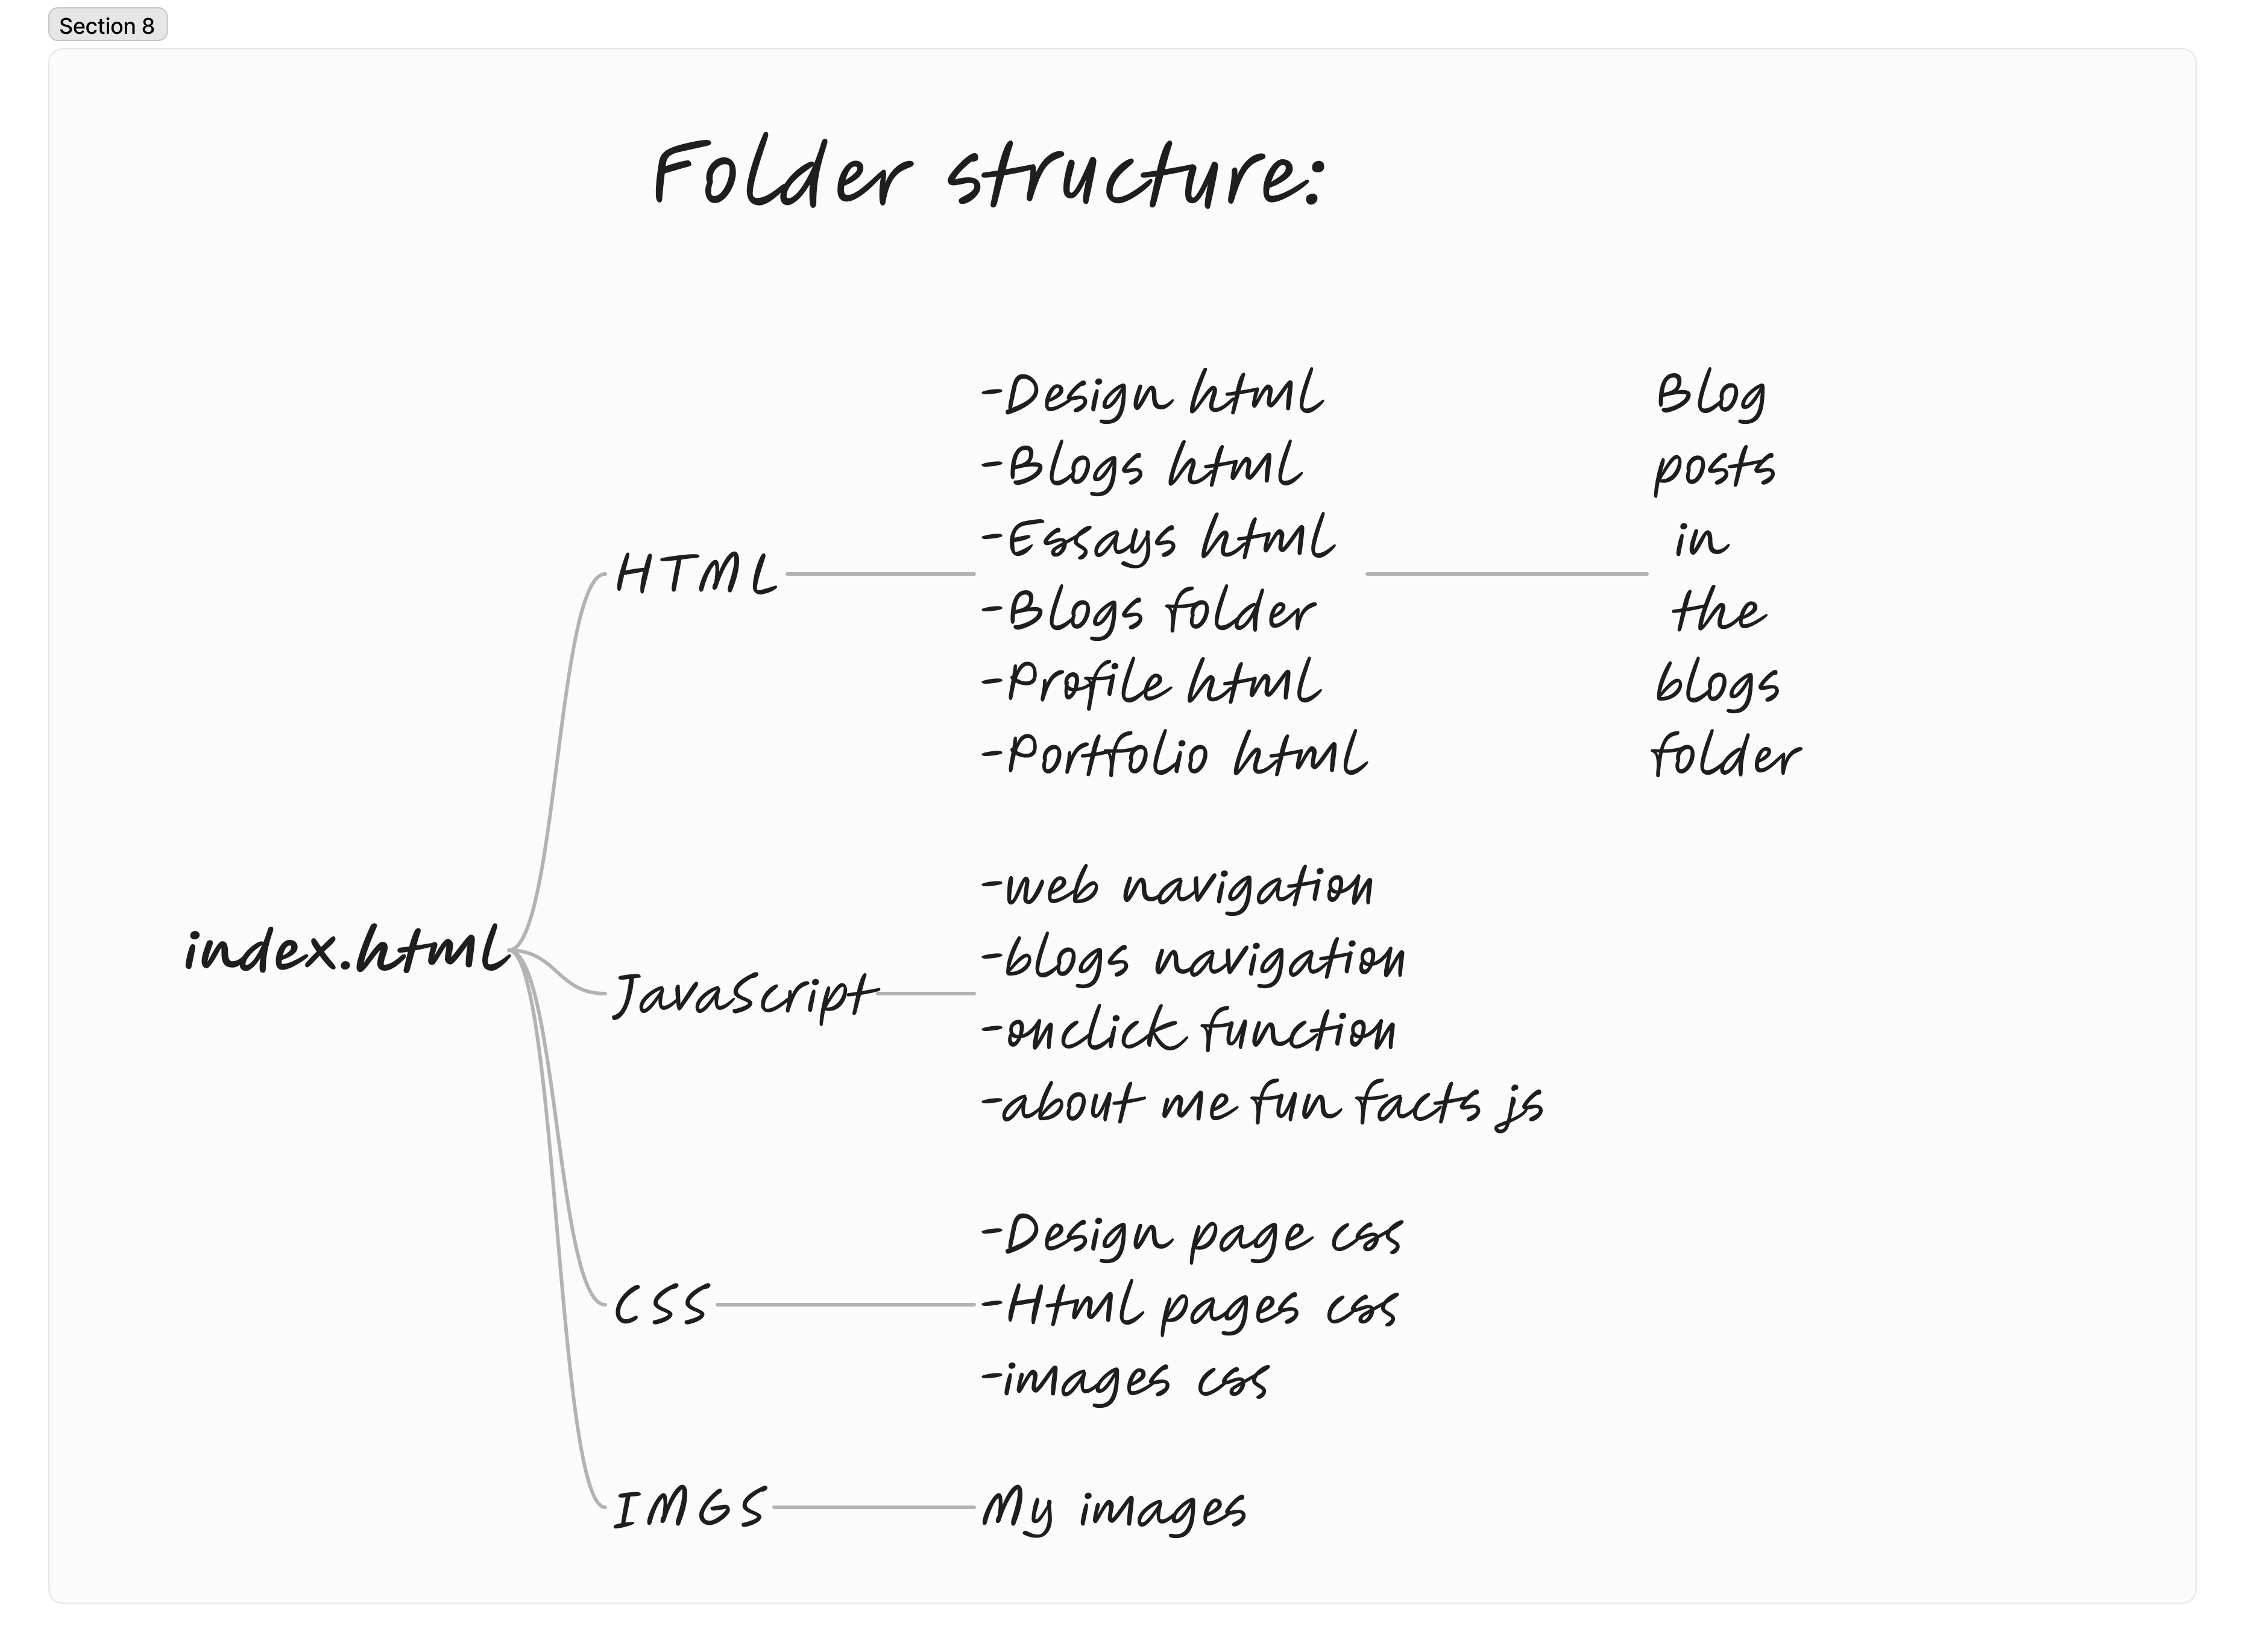 Section 8
Folder structure:
index.html
HTML
-Design html
-Blogs html
-Essays html
-Blogs folder
-Profile html
-Portfolio html
Blog
posts
in
the
blogs
folder
Javascript
-web navigation
-blogs navigation
-onclick function
-about me fun facts js
CSS
-Design page css
-Html pages css
-images css
IMGS
My images